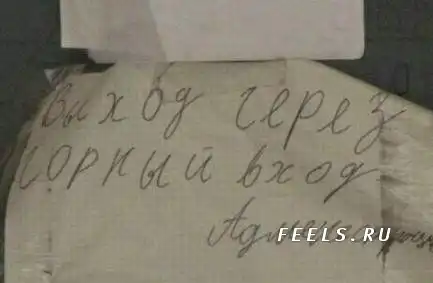 Выход через
горный вход
FEELS.RU